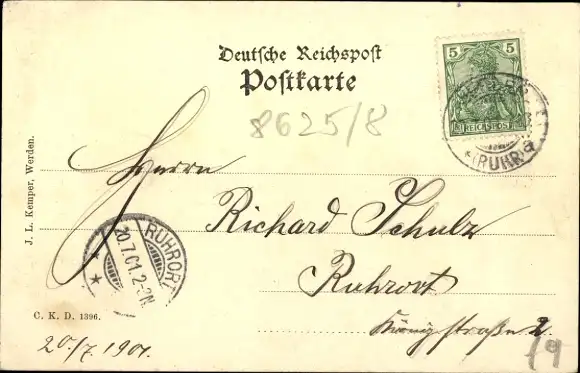 Deutsche Reichspost
Postkarte
5 5
REICHSPOST
(RUHR)
a
8625/8
Herrn
Richard Schulz
Ruhrort
Königstraße 2.
RUHRORT
20.7.01.2-3N.
* *
J. L. Kemper, Werden.
C. K. D. 1396.
20/7. 1901.